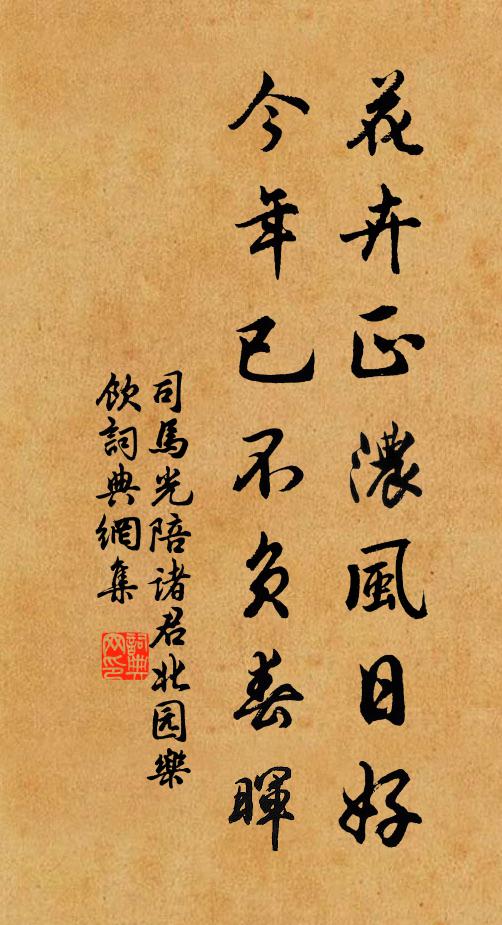 花卉正濃風日好
今年已不負春暉
司馬光陪諸君北园樂
飲詞典網集
詞典
网印